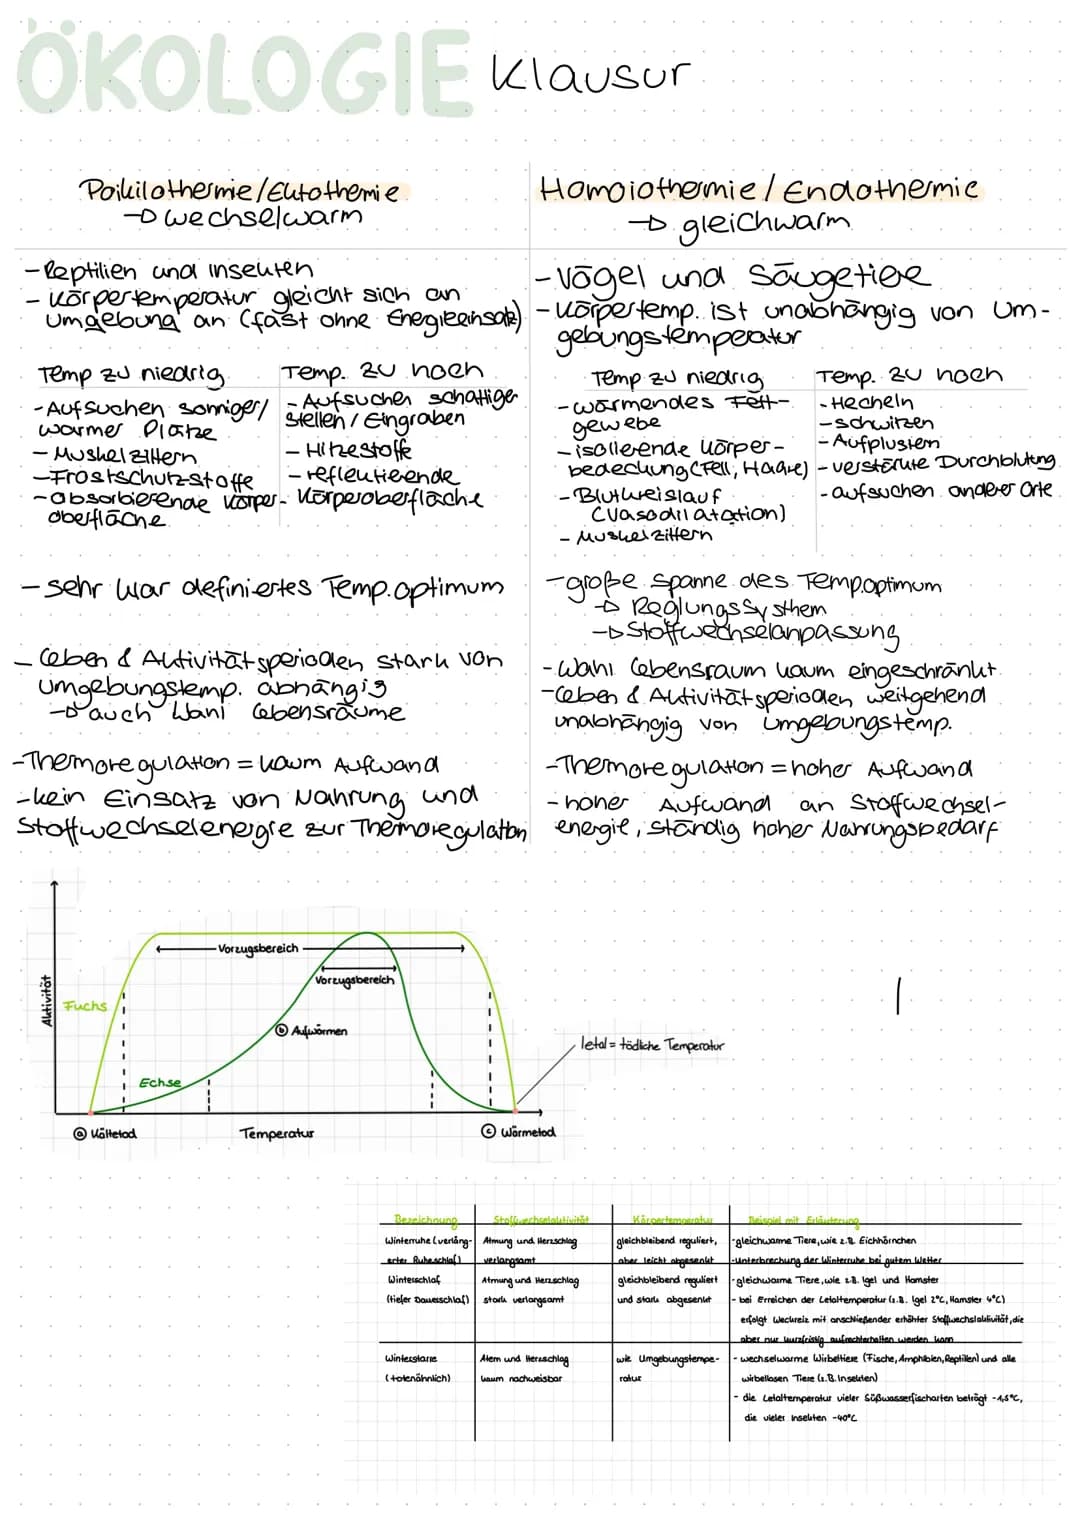 ÖKOLOGIE Klausur
Poikilothermie/Ektothemie
→ wechselwarm
- Reptilien und Insekten
- Körpertemperatur gleicht sich an
Umgebung an (fast ohne Energieeinsatz)
Temp zu niedrig
- Aufsuchen sonniger/
warmer Plätze
- Muskelzittern
- Frostschutzstoffe
- absorbierende Körper-
oberfläche
Temp. zu hoch
- Aufsuchen schattiger
stellen / Eingraben
- Hitzestoffe
- reflektierende
Körperoberfläche
- sehr klar definiertes Temp.optimum
- Leben & Aktivitätsperioden stark von
Umgebungstemp. abhängig
→ auch Wahl Lebensräume
- Thermoregulation = kaum Aufwand
- kein Einsatz von Nahrung und
Stoffwechselenergie zur Thermoregulation
Homoiothermie / Endothermie
→ gleichwarm
- Vögel und Säugetiere
- Körpertemp. ist unabhängig von Um-
gebungstemperatur
Temp zu niedrig
- wärmendes Fett-
gewebe
- isolierende Körper-
bedeckung (Fell, Haare)
- Blutkreislauf
(Vasodilatation)
- Muskelzittern
Temp. zu hoch
- Hecheln
- schwitzen
- Aufplustern
- verstärkte Durchblutung
- aufsuchen anderer Orte
- große Spanne des Temp.optimum
→ Reglungssysthem
→ Stoffwechselanpassung
- Wahl Lebensraum kaum eingeschränkt
- Leben & Aktivitätsperioden weitgehend
unabhängig von Umgebungstemp.
- Thermoregulation = hoher Aufwand
- hoher Aufwand an Stoffwechsel-
energie, ständig hoher Nahrungsbedarf
Aktivität
Vorzugsbereich
Vorzugsbereich
Fuchs
ⓑ Aufwärmen
letal = tödliche Temperatur
Echse
ⓐ Kältetod
Temperatur
ⓒ Wärmetod
Bezeichnung
Stoffwechselaktivität
Körpertemperatur
Beispiel mit Erläuterung
Winterruhe (verläng-
erter Ruheschlaf)
Atmung und Herzschlag
verlangsamt
gleichbleibend reguliert,
aber leicht abgesenkt
- gleichwarme Tiere, wie z.B. Eichhörnchen
- Unterbrechung der Winterruhe bei gutem Wetter
Winterschlaf
(tiefer Dauerschlaf)
Atmung und Herzschlag
stark verlangsamt
gleichbleibend reguliert
und stark abgesenkt
- gleichwarme Tiere, wie z.B. Igel und Hamster
- bei Erreichen der Letaltemperatur (z.B. Igel 2°C, Hamster 4°C)
erfolgt Weckreiz mit anschließender erhöhter Stoffwechslaktivität, die
aber nur kurzfristig aufrechterhalten werden kann
Winterstarre
(totenähnlich)
Atem und Herzschlag
kaum nachweisbar
wie Umgebungstempe-
ratur
- wechselwarme Wirbeltiere (Fische, Amphibien, Reptilien) und alle
wirbellosen Tiere (z.B. Insekten)
- die Letaltemperatur vieler Süßwasserfischarten beträgt -1,5°C,
die vieler Insekten -40°C